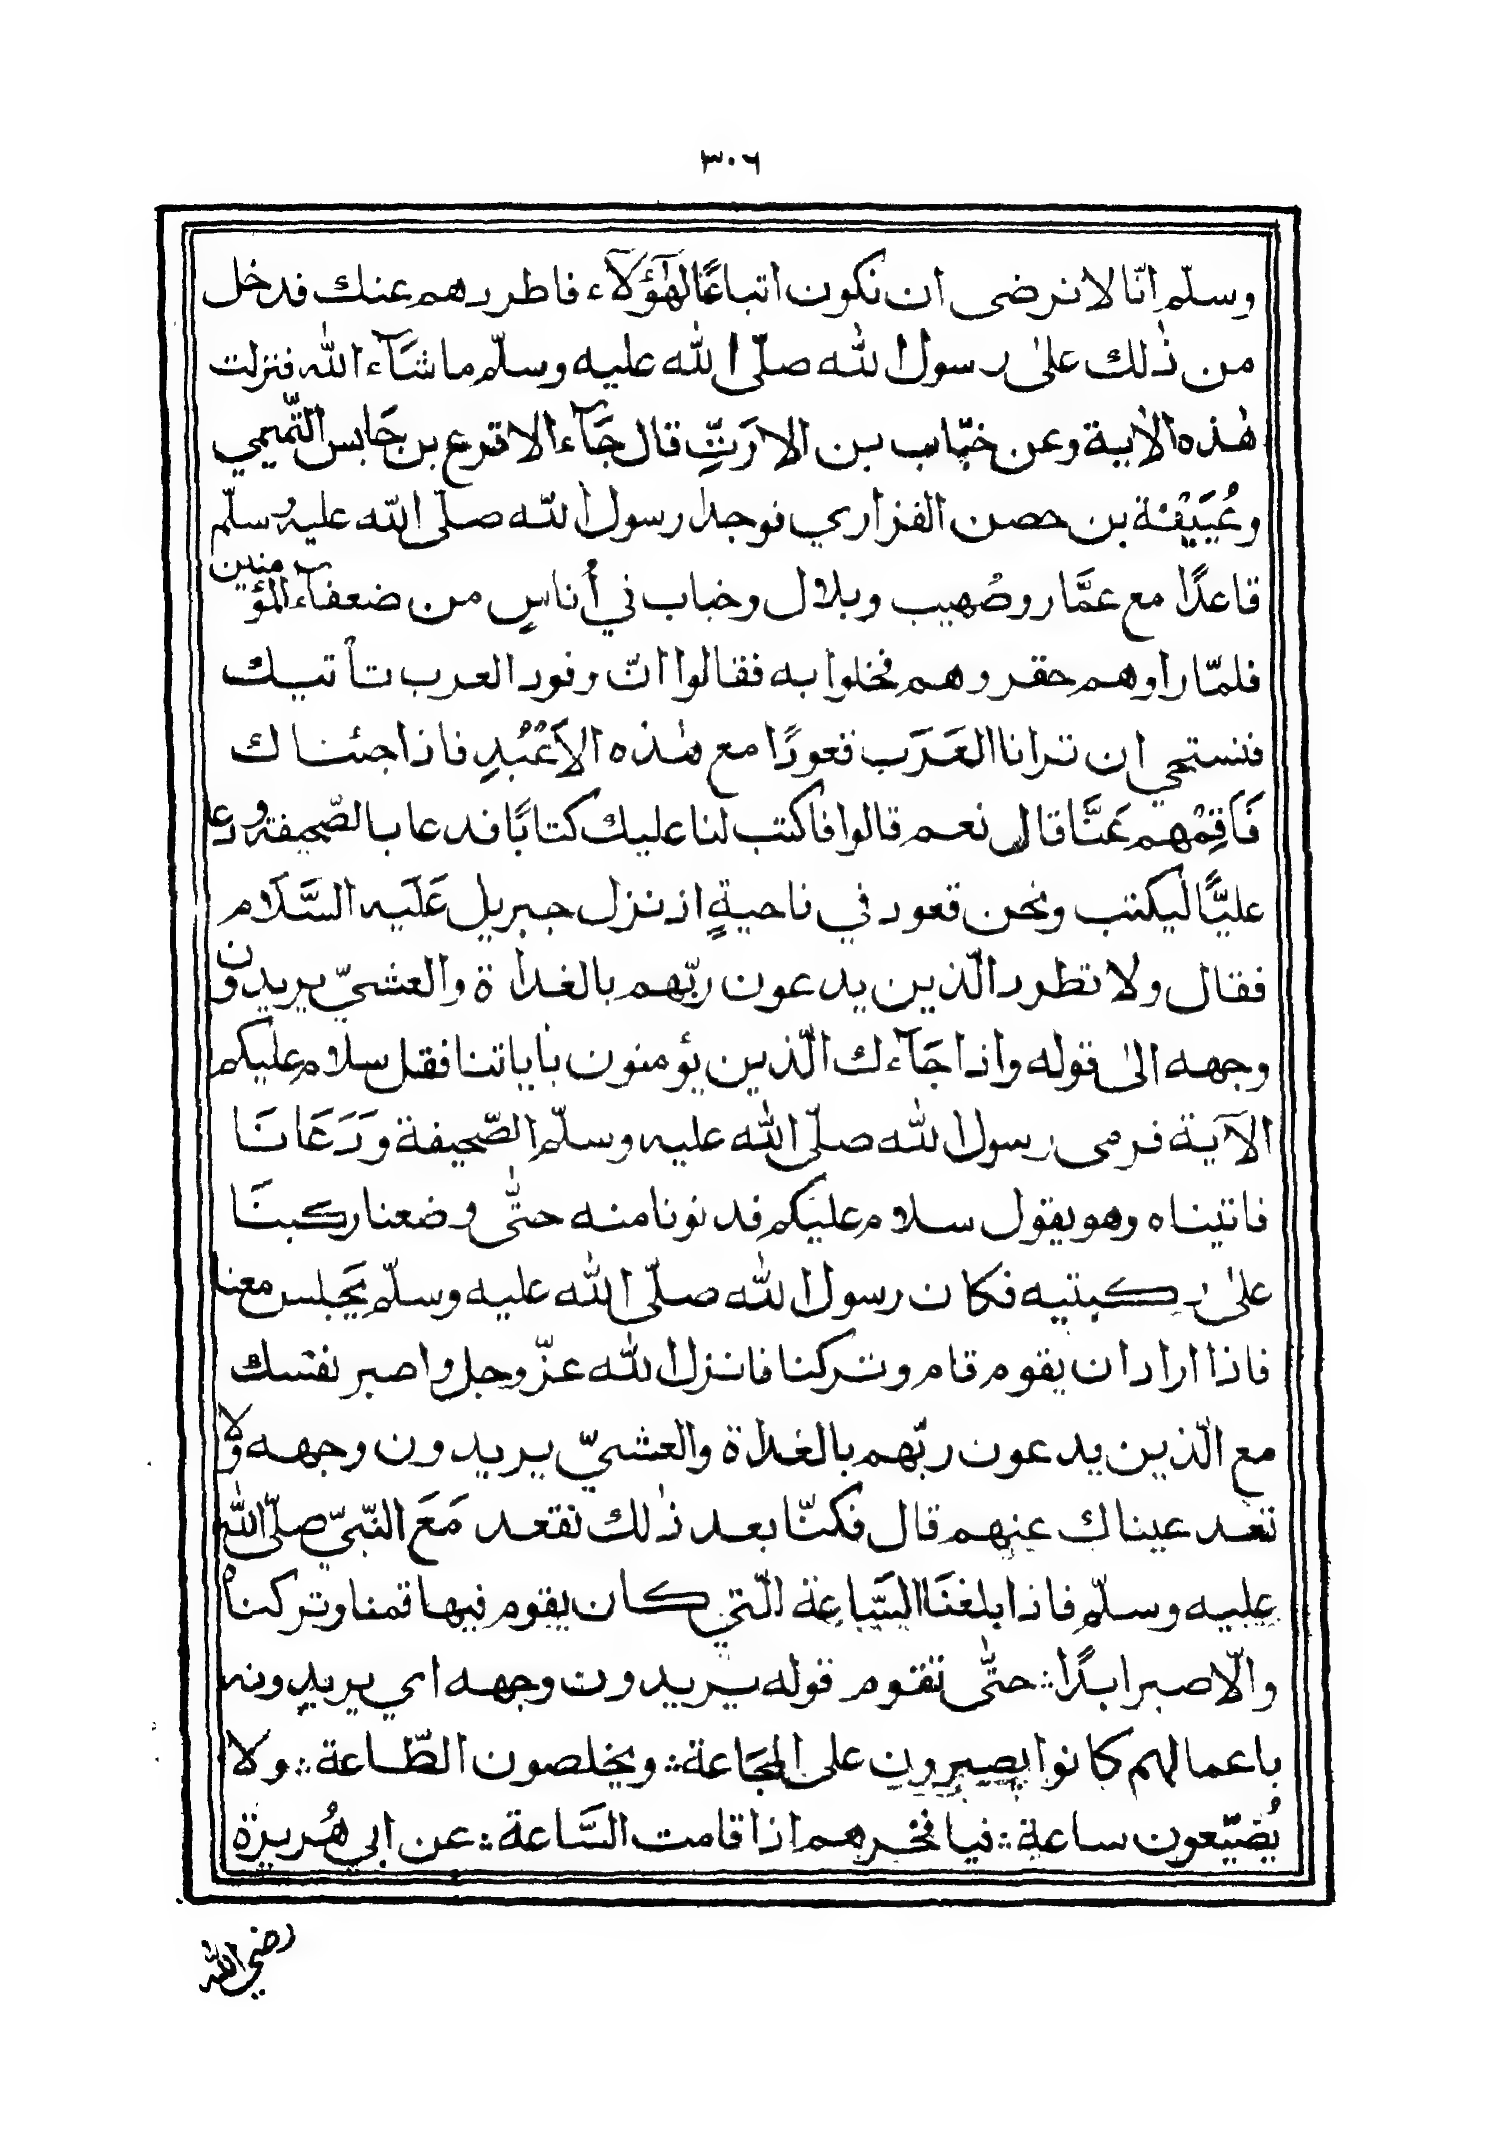 ٣٠٦
وسلّم انّا لا نرضى ان نكون اتباعًا لهٰؤُلآء فاطردهم عنك فدخل
من ذٰلك علىٰ رسول الله صلّى الله عليه وسلّم ما شآء الله فنزلت
هٰذه الاٰية وعن خبّاب بن الارَتِّ قال جَآء الاقرع بن حَابس التَّميمي
وعُيَيْنة بن حصن الفزاري فوجدا رسول الله صلّى الله عليه وسلّم
قاعدًا مع عمَّار وصُهيب وبلال وخباب في أُناسٍ من ضعفآء المؤمنين
فلمّا راوهم حقروهم فخلوا به فقالوا انّ وفود العرب تأتيك
فنستحي ان ترانا العَرَب قعودًا مع هٰذه الاَعْبُدِ فاذا جئناك
فَاَقِمْهم عَنَّا قال نعم قالوا فاكتب لنا عليك كتابًا فدعا بالصّحيفة ودعا
عليًّا ليكتب ونحن قعود في ناحيةٍ اذ نزل جبريل عَلَيه السَّلَام
فقال ولا تطرد الّذين يدعون ربّهم بالغداة والعشيّ يريدون
وجهه الىٰ قوله واذا جَآءك الّذين يؤمنون بأياتنا فقل سلام عليكم
الآيَة فرمى رسول الله صلّى الله عليه وسلّم الصّحيفة وَدَعَانَا
فاتيناه وهو يقول سلام عليكم فدنونا منه حتّٰى وضعنا ركبنَا
علىٰ ركبتيه فكان رسول الله صلّى الله عليه وسلّم يَجلس معنا
فاذا اراد ان يقوم قام وتركنا فانزل الله عزّ وجل واصبر نفسك
مع الّذين يدعون ربّهم بالغداة والعشيّ يريدون وجهه ولا
تعد عيناك عنهم قال فكنّا بعد ذٰلك نقعد مَعَ النّبيّ صلّى الله
عليه وسلّم فاذا بلغنَا السَّاعة الّتي كان يقوم فيها قمنا وتركناْه
والّا صبر ابدًا ∴ حتّٰى نقوم قوله يريدون وجهه اي يريدونه
باعمالهم كانوا يصبرون على المجَاعة ∴ ويخلصون الطّاعة ∴ ولا
يُضيّعون ساعة ∴ فيا فخرهم اذا قامت السَّاعة ∴ عن ابي هُريرة
رضي الله